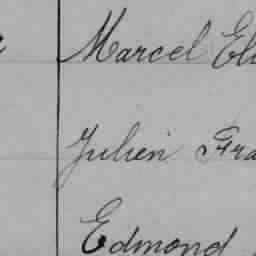 Marcel Eli
Julien Fra
Edmond